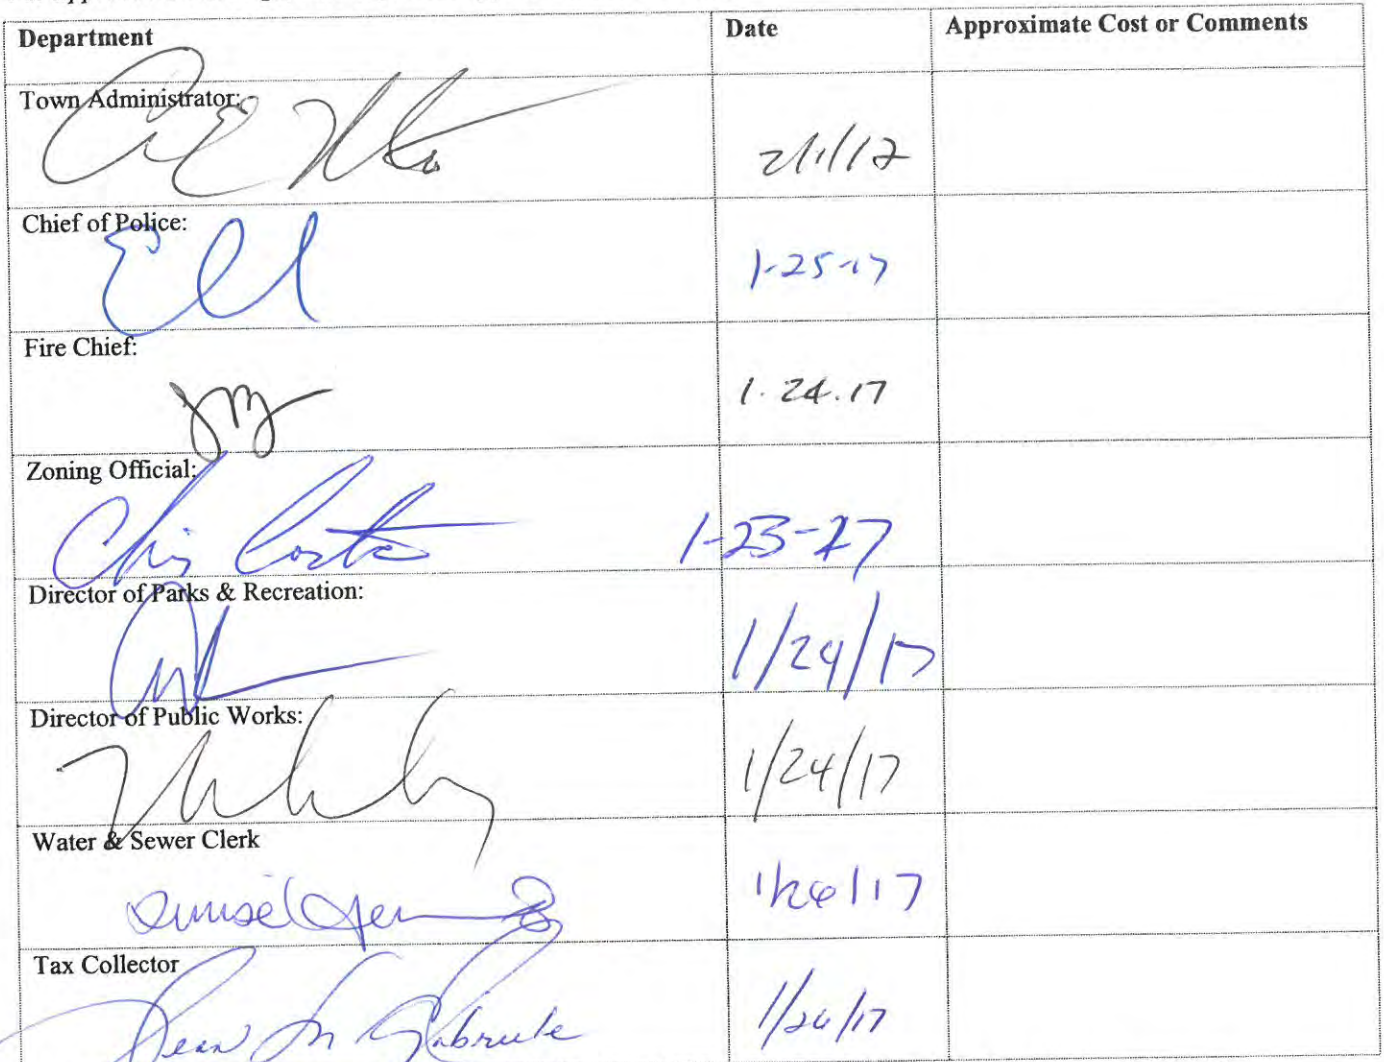 Department Date Approximate Cost or Comments
Town Administrator:
2/1/17
Chief of Police:
1-25-17
Fire Chief:
1.24.17
Zoning Official:
Chris Costa 1-23-17
Director of Parks & Recreation:
1/24/17
Director of Public Works:
1/24/17
Water & Sewer Clerk
1/26/17
Tax Collector
1/26/17